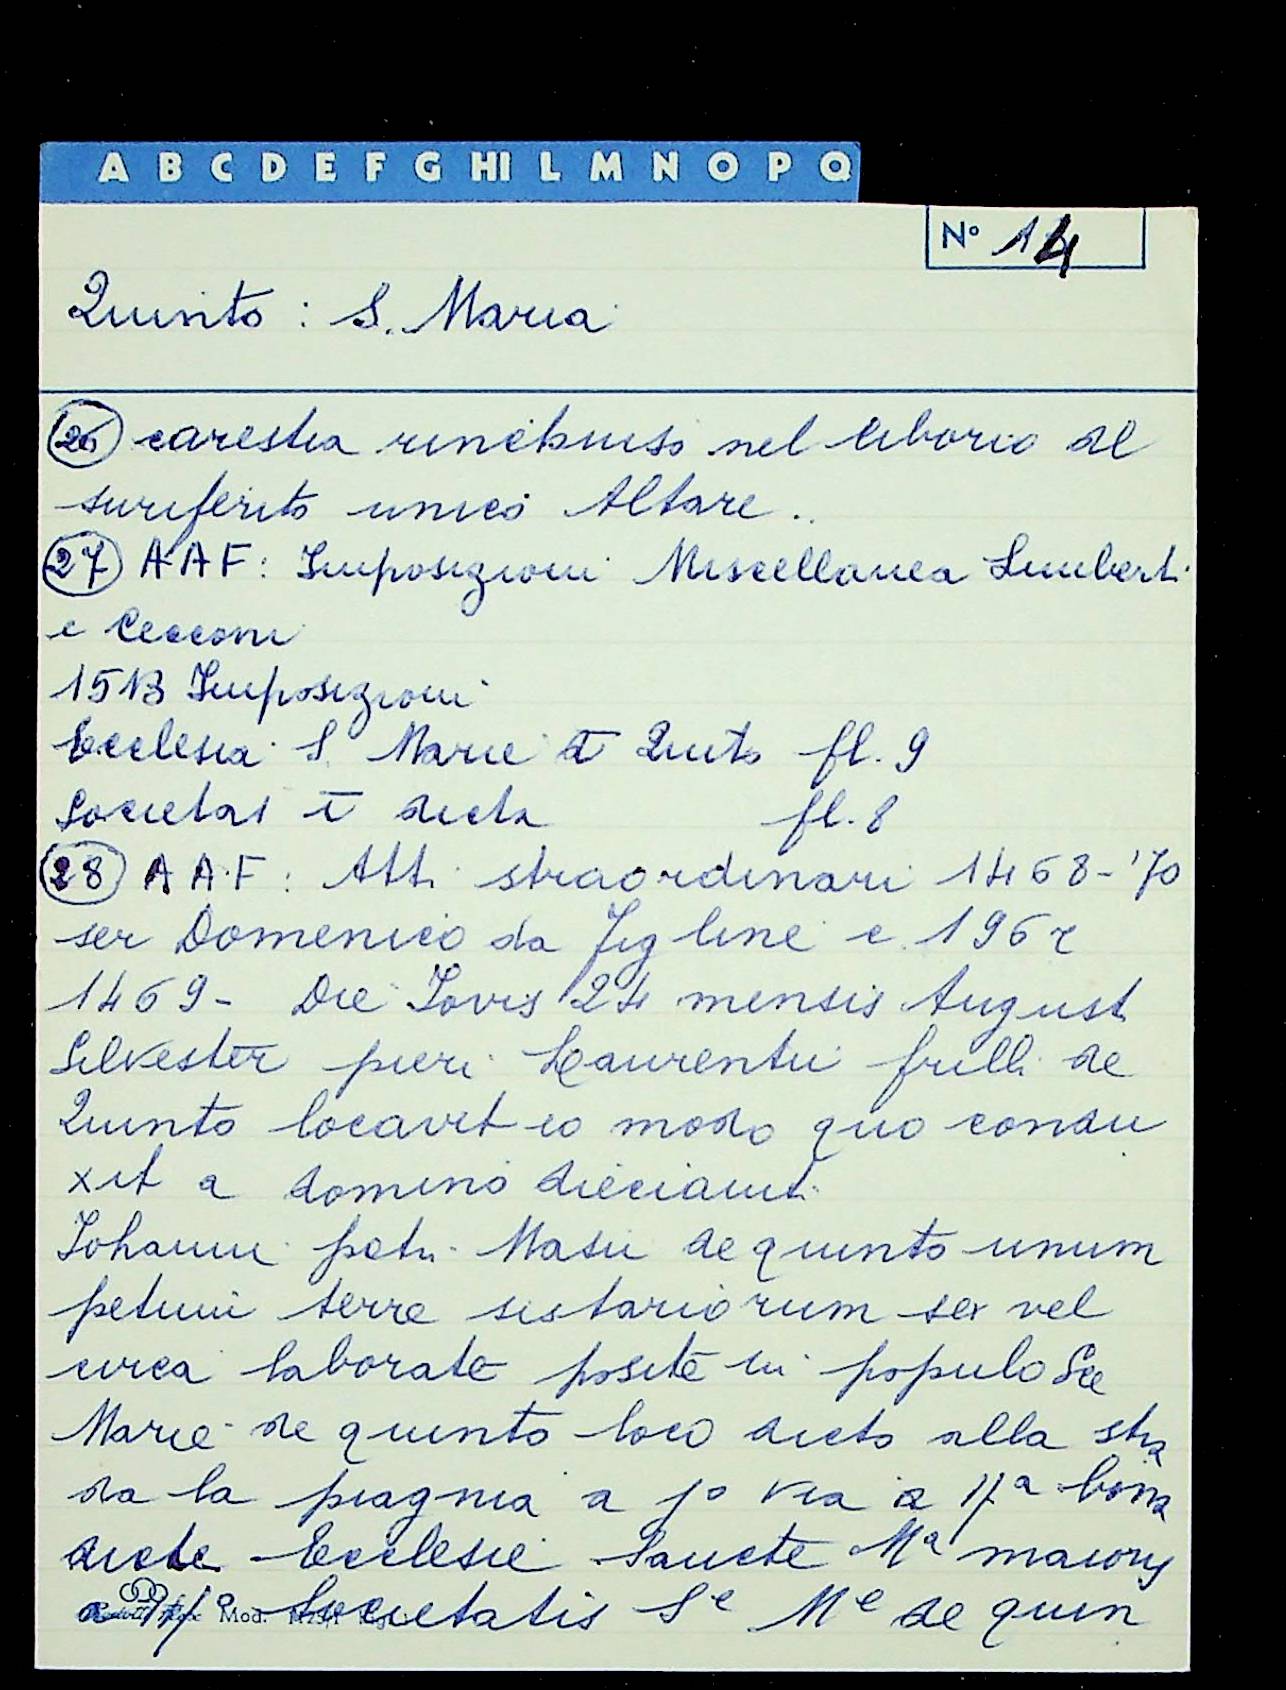 A B C D E F G HI L M N O P Q
N° 14
Quinto : S. Maria
26 carestia rinchiuso nel ciborio del
suriferito unico Altare..
27 AAF: Imposizioni Miscellanea Limberti
e Cecconi
1513 Imposizioni
Ecclesia S. Marie ā Quito fl. 9
Societas ī dicta fl. 8
28 AAF: Atti straordinari 1468-'70
ser Domenico da Figline c 196 r
1469- Die Iovis 24 mensis Augusti
Silvester pieri Laurentii frilli de
Quinto locavit eo modo quo condu
xit a domino
Iohanni petri Masii de quinto unum
petium terre sistariorum sex vel
circa laborate posite in populo Sce
Marie de quinto loco dicto alla stra
da la piagnia a 1° via a 11ª bona
dicte Ecclesie Sancte Mª maiorj
Societatis Sᵉ Mᵉ de quin
Mod.